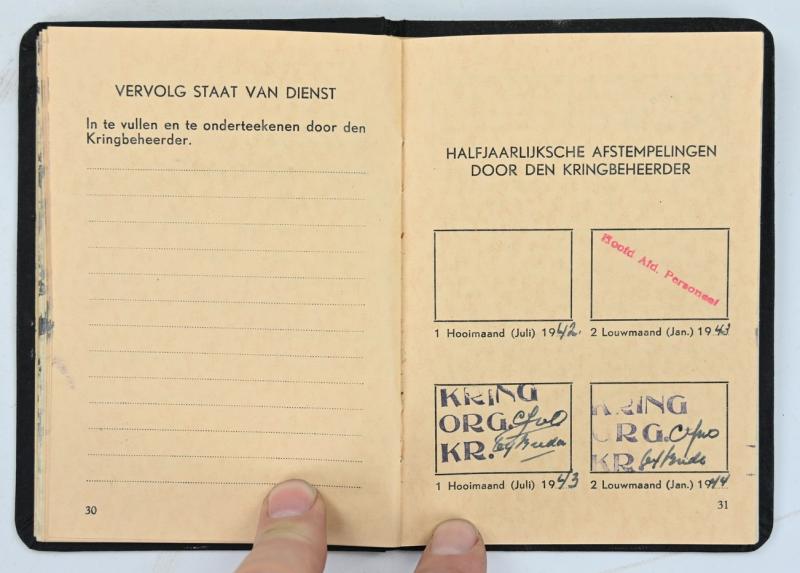 VERVOLG STAAT VAN DIENST
In te vullen en te onderteekenen door den
Kringbeheerder.
30
HALFJAARLIJKSCHE AFSTEMPELINGEN
DOOR DEN KRINGBEHEERDER
Hoofd Afd. Personeel
1 Hooimaand (Juli) 1942.
2 Louwmaand (Jan.) 1943
KRING
ORG.
KR.
KRING
ORG.
KR.
1 Hooimaand (Juli) 1943
2 Louwmaand (Jan.) 1944
31